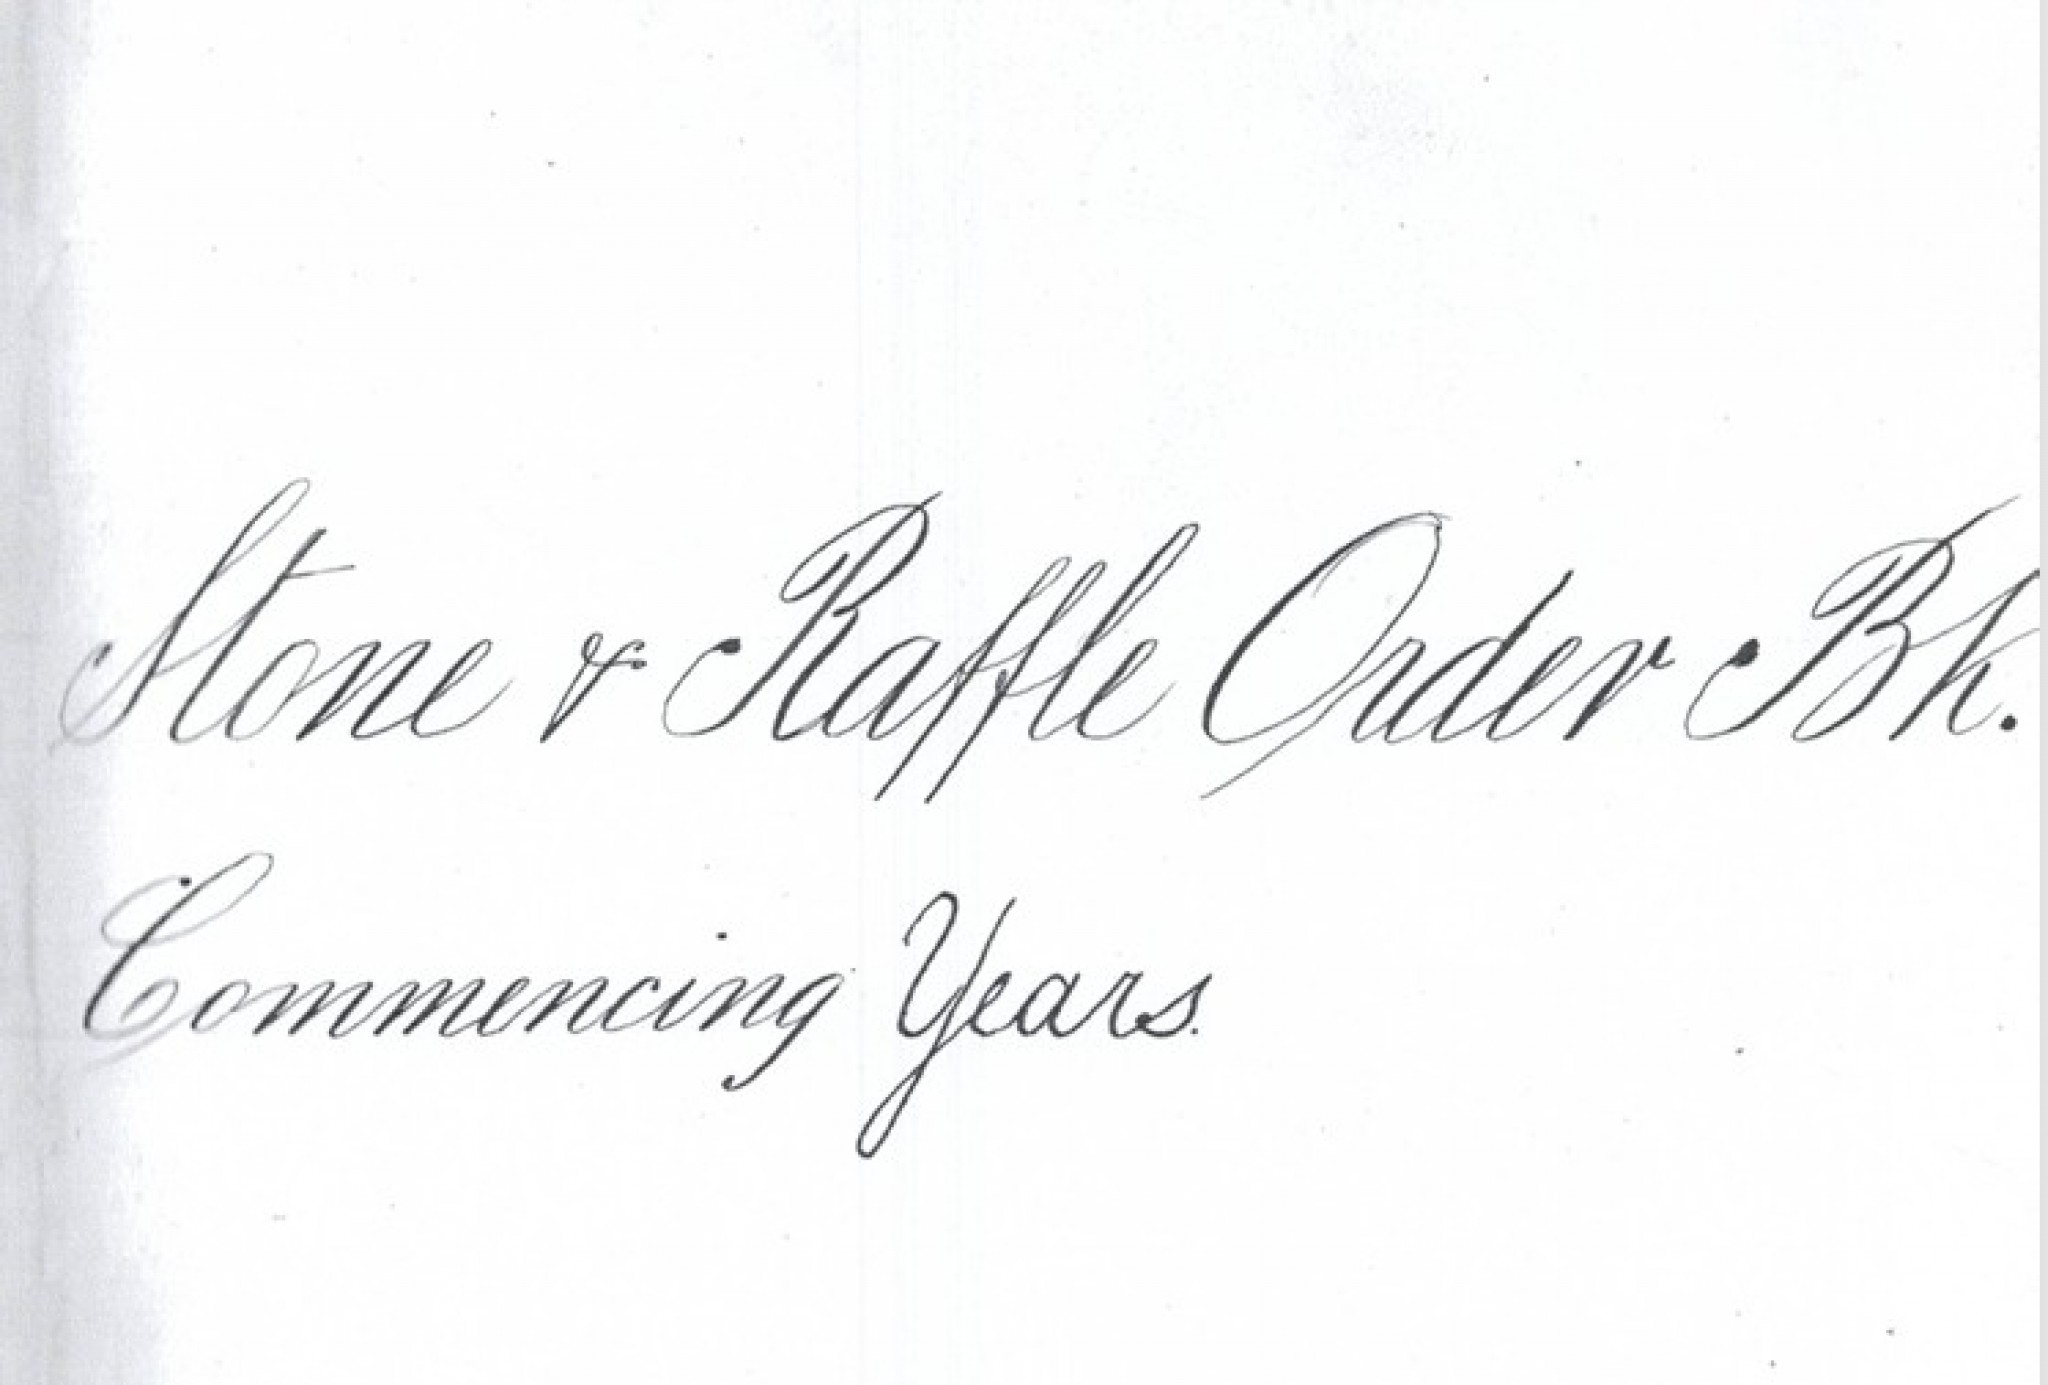 Stone & Raffle Order Bk.
Commencing Years.